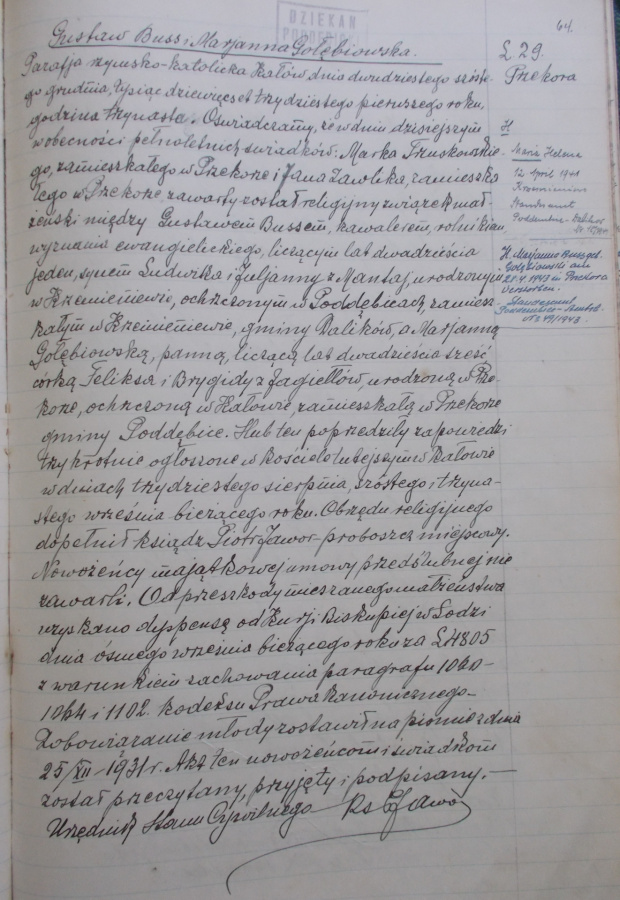 DZIEKAN
64.
Gustaw Buss i Marjanna Gołębiowska.
Ł. 29.
Przekora
Parafja rzymsko-katolicka Kałów, dnia dwudziestego szóste-
go grudnia, tysiąc dziewięćset trzydziestego pierwszego roku,
godzina trzynasta. Oświadczamy, że w dniu dzisiejszym
w obecności pełnoletnich świadków: Marka Truskowskie-
go, zamieszkałego w Przekorze i Jana Zawleka, zamieszka-
łego w Przekorze, zawarty został religijny związek mał-
żeński między Gustawem Bussem, kawalerem, rolnikiem,
wyznania ewangielickiego, liczącym lat dwadzieścia
jeden, synem Ludwika i Juljanny z Mantaj, urodzonym
w Krzemieniewie, ochrzczonym w Poddębicach, zamiesz-
kałym w Krzemieniewie, gminy Dalików, a Marjanną
Gołębiowską, panną, liczącą lat dwadzieścia sześć
córką Feliksa i Brygidy z Jagiełłów, urodzoną w Prze-
korze, ochrzczoną w Kałowie, zamieszkałą w Przekorze
gminy Poddębice. Ślub ten poprzedziły zapowiedzi
trzykrotnie ogłoszone w kościele tutejszym w Kałowie
w dniach trzydziestego sierpnia, szóstego i trzyna-
stego września bieżącego roku. Obrzędu religijnego
dopełnił ksiądz Piotr Jawor proboszcz miejscowy.
Nowożeńcy majątkowej umowy przedślubnej nie
zawarli. Od przeszkody mieszanego małżeństwa
uzyskano dyspensę od Kurji Biskupiej w Łodzi
dnia ósmego września bieżącego roku za Ł 4805
z warunkiem zachowania paragrafu 1060-
1064 i 1102. Kodeksu Prawa Kanonicznego-
Zobowiązanie młody zostawił na piśmie z dnia
25/XII-1931 r. Akt ten nowożeńcom i świadkom
został przeczytany, przyjęty i podpisany.-
Urzędnik Stanu Cywilnego Ks P Jawor
H
Maria Helene
12 April 1941
Krzemieniew
Standesamt
Poddembice
H. Marjanna Buss geb.
Golębiowski am
21.4.1943 in Przekora
verstorben.
Standesamt
Poddembice
No 49/1943.